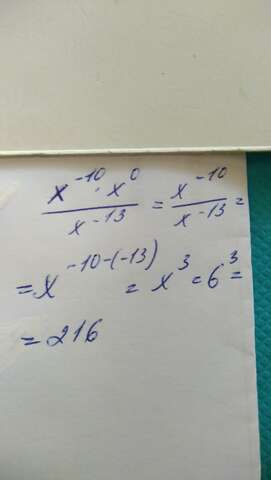 x^{-10} · x^0 / x^{-13} = x^{-10} / x^{-13} =
= x^{-10-(-13)} = x^3 = 6^3 =
= 216